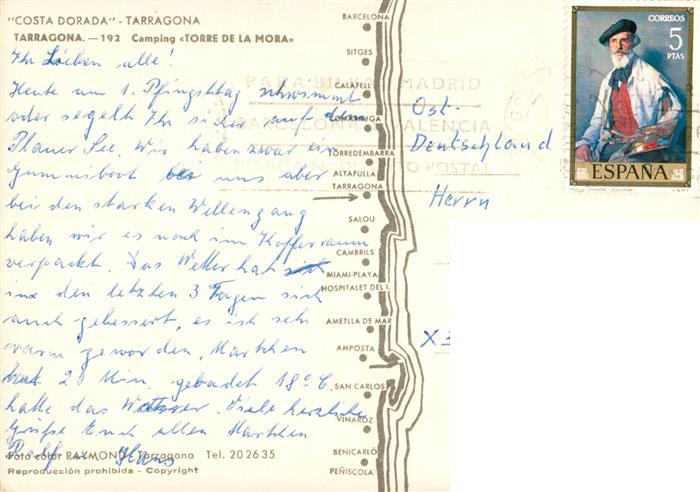 "COSTA DORADA" - TARRAGONA
TARRAGONA. — 192 Camping «TORRE DE LA MORA»
Ihr Lieben alle!
Heute am 1. Pfingsttag schwimmt
oder segelt Ihr sicher auf dem
Plauer See, wir haben zwar ein
Gummiboot bei uns aber
bei den starken Wellengang
haben wir es noch im Kofferraum
verpackt. Das Wetter hat
in den letzten 3 Tagen sich
auch gebessert, es ist sehr
warm geworden, Martchen
hat 20 Min. gebadet 18°C
hatte das Wasser. Viele herzliche
Grüße Euch allen Martchen
Ralf u. Hans
Foto color RAYMOND Tarragona Tel. 202635
Reproducción prohibida - Copyright
BARCELONA
SITGES
CALAFELL
COMARRUGA
TORREDEMBARRA
ALTAFULLA
TARRAGONA
SALOU
CAMBRILS
MIAMI-PLAYA
HOSPITALET DEL I.
AMETLLA DE MAR
AMPOSTA
SAN CARLOS
VINAROZ
BENICARLÓ
PEÑISCOLA
PARA BILBAO MADRID
BARCELONA VALENCIA
POSTAL
Ost-
Deutschland
Herrn
X 3
CORREOS
5
PTAS
ESPAÑA